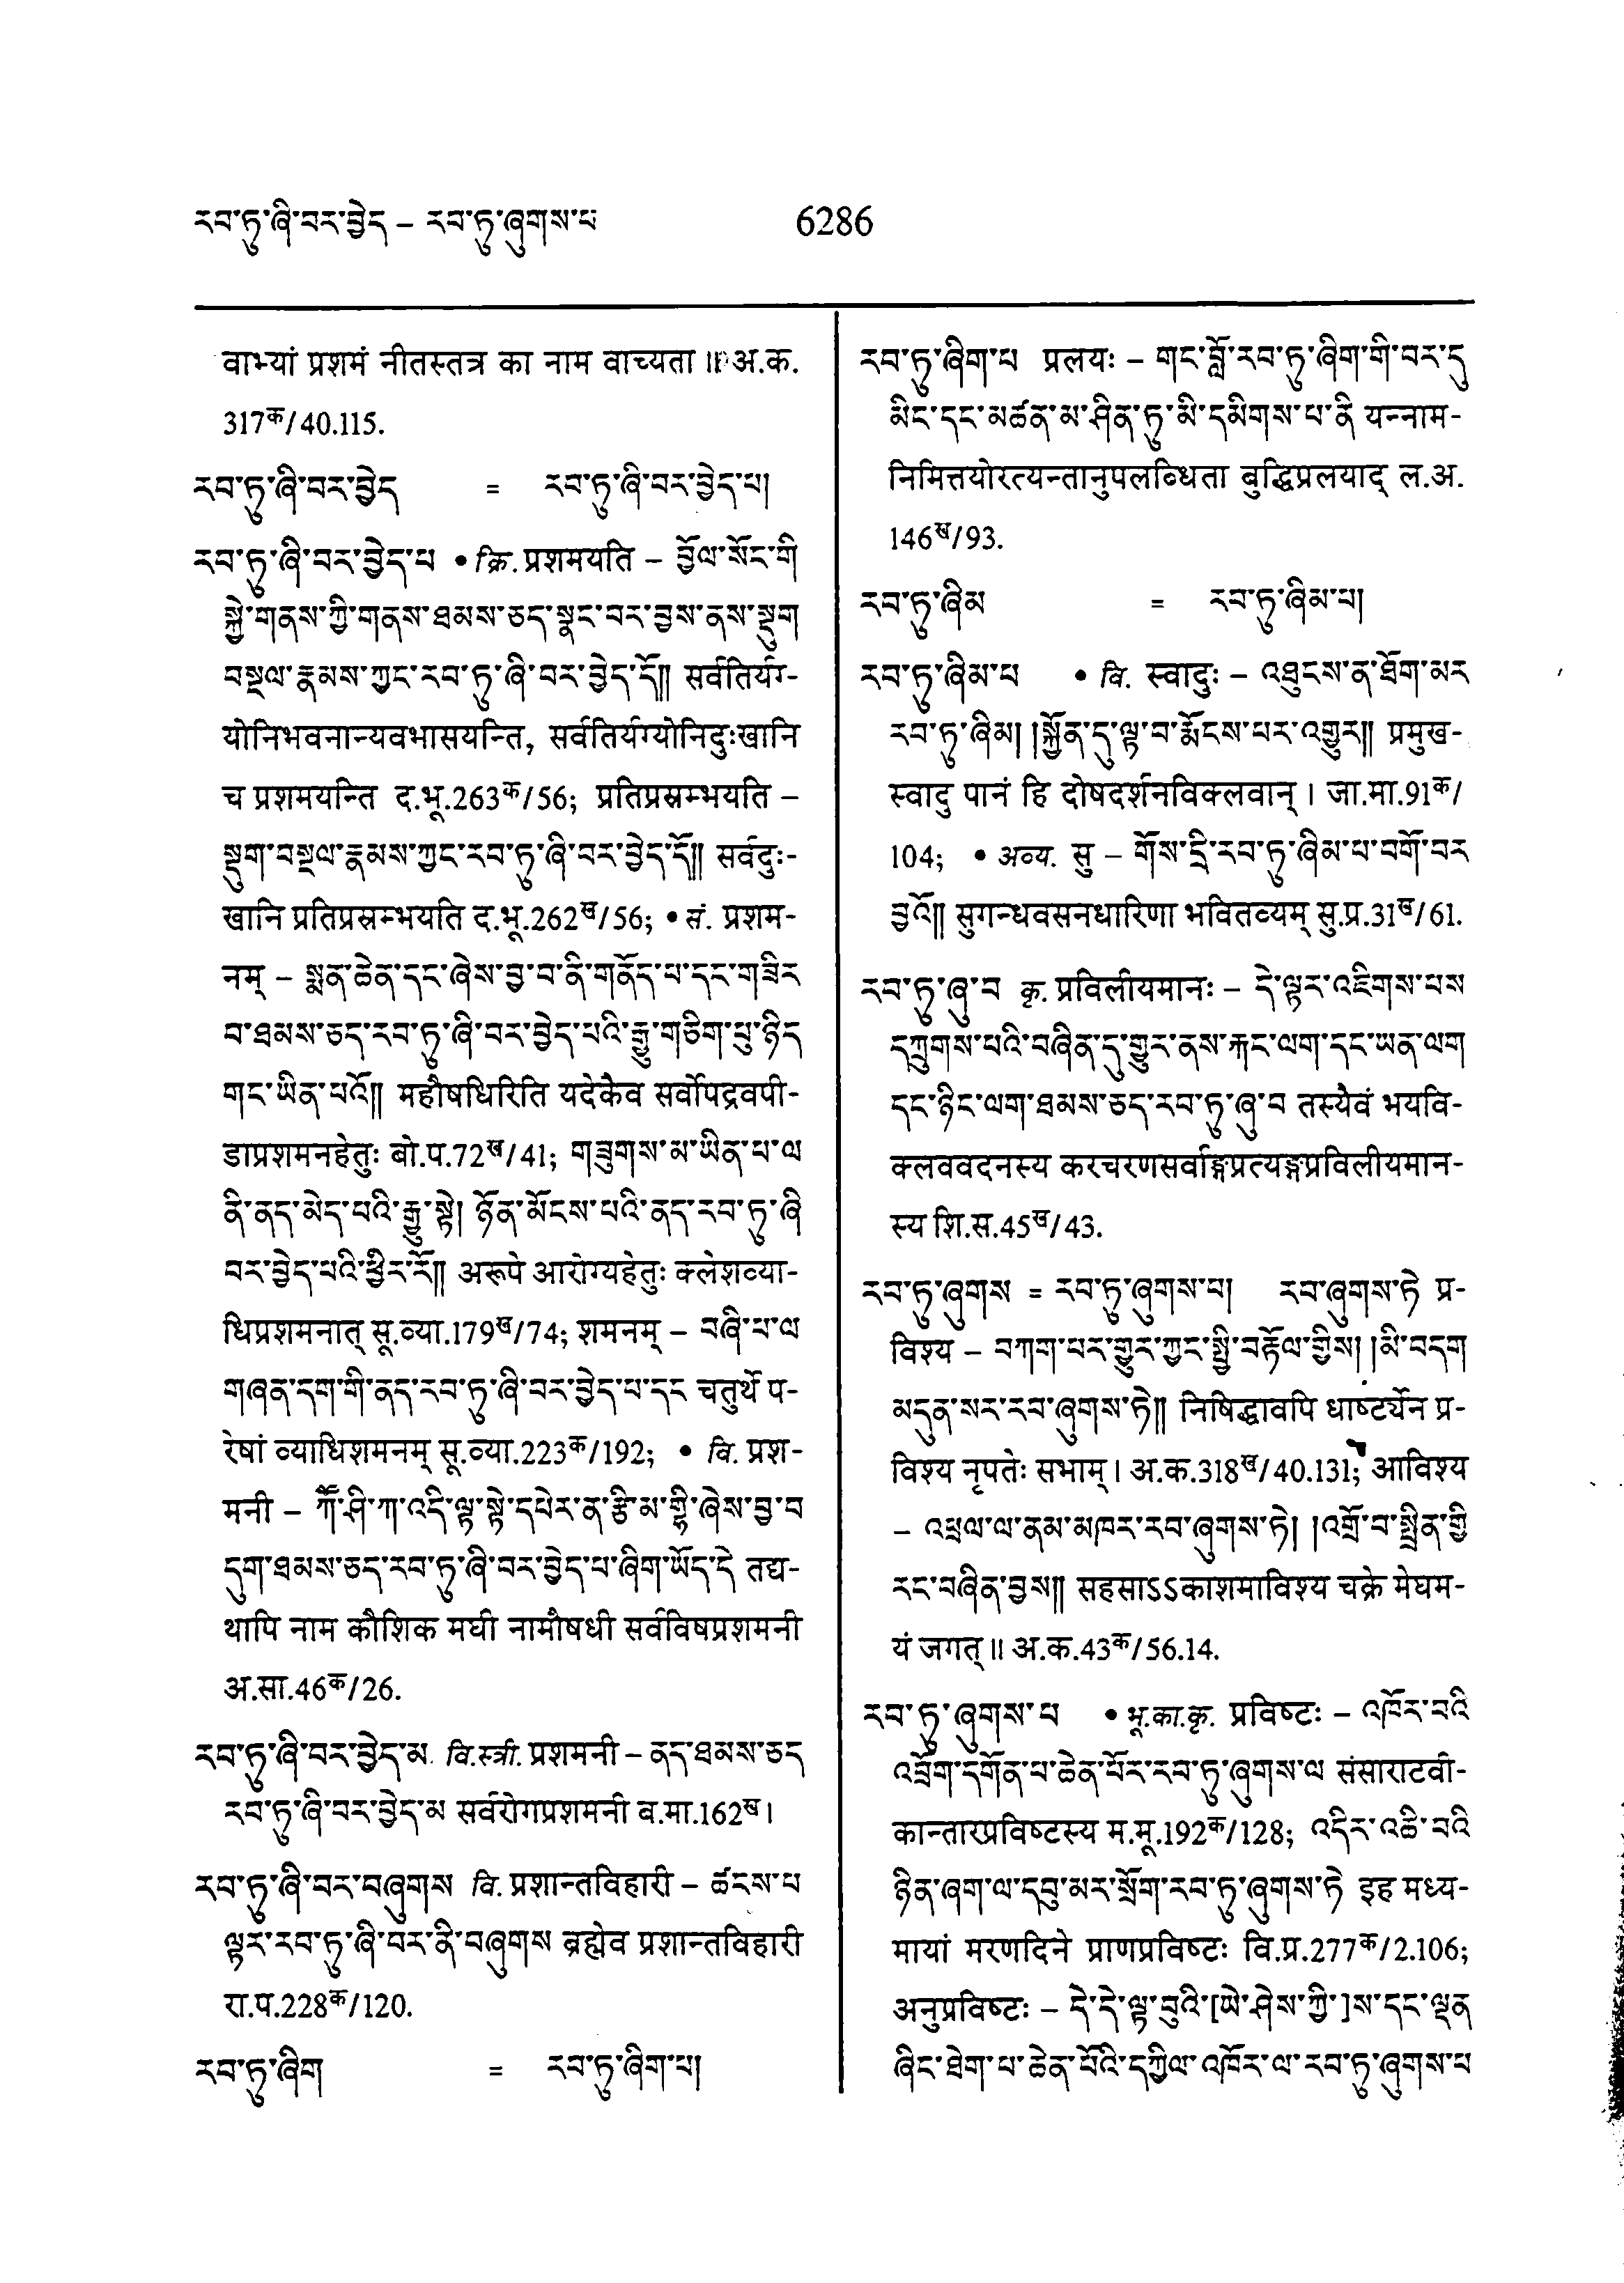 རབ་ཏུ་ཞི་བར་བྱེད – རབ་ཏུ་ཞུགས་པ
6286
वाभ्यां प्रशमं नीतस्तत्र का नाम वाच्यता ॥ अ.क.
317क/40.115.
རབ་ཏུ་ཞི་བར་བྱེད = རབ་ཏུ་ཞི་བར་བྱེད་པ།
རབ་ཏུ་ཞི་བར་བྱེད་པ • क्रि. प्रशमयति – བྱོལ་སོང་གི
སྐྱེ་གནས་ཀྱི་གནས་ཐམས་ཅད་སྣང་བར་བྱས་ནས་སྡུག
བསྔལ་རྣམས་ཀྱང་རབ་ཏུ་ཞི་བར་བྱེད་དོ༎ सर्वतिर्यग्-
योनिभवनान्यवभासयन्ति, सर्वतिर्यग्योनिदुःखानि
च प्रशमयन्ति द.भू.263क/56; प्रतिप्रस्रम्भयति –
སྡུག་བསྔལ་རྣམས་ཀྱང་རབ་ཏུ་ཞི་བར་བྱེད་དོ༎ सर्वदुः-
खानि प्रतिप्रस्रम्भयति द.भू.262ख/56; • सं. प्रशम-
नम् – སྨན་ཆེན་དང་ཞེས་བྱ་བ་ནི་གནོད་པ་དང་གཟིར
བ་ཐམས་ཅད་རབ་ཏུ་ཞི་བར་བྱེད་པའི་རྒྱུ་གཅིག་པུ་ཉིད
གང་ཡིན་པའོ༎ महौषधिरिति यदेकैव सर्वोपद्रवपी-
डाप्रशमनहेतुः बो.प.72ख/41; གཟུགས་མ་ཡིན་པ་ལ
ནི་ནད་མེད་པའི་རྒྱུ་སྟེ། ཉོན་མོངས་པའི་ནད་རབ་ཏུ་ཞི
བར་བྱེད་པའི་ཕྱིར་རོ༎ अरूपे आरोग्यहेतुः क्लेशव्या-
धिप्रशमनात् सू.व्या.179ख/74; शमनम् – བཞི་པ་ལ
གཞན་དག་གི་ནད་རབ་ཏུ་ཞི་བར་བྱེད་པ་དང चतुर्थे प-
रेषां व्याधिशमनम् सू.व्या.223क/192; • वि. प्रश-
मनी – ཀཽ་ཤི་ཀ་འདི་ལྟ་སྟེ་དཔེར་ན་རྩི་མ་གྷི་ཞེས་བྱ་བ
དུག་ཐམས་ཅད་རབ་ཏུ་ཞི་བར་བྱེད་པ་ཞིག་ཡོད་དེ तद्य-
थापि नाम कौशिक मघी नामौषधी सर्वविषप्रशमनी
अ.सा.46क/26.
རབ་ཏུ་ཞི་བར་བྱེད་མ वि.स्त्री. प्रशमनी – ནད་ཐམས་ཅད
རབ་ཏུ་ཞི་བར་བྱེད་མ सर्वरोगप्रशमनी व.मा.162ख।
རབ་ཏུ་ཞི་བར་བཞུགས वि. प्रशान्तविहारी – ཚངས་པ
ལྟར་རབ་ཏུ་ཞི་བར་ནི་བཞུགས ब्रह्मेव प्रशान्तविहारी
रा.प.228क/120.
རབ་ཏུ་ཞིག = རབ་ཏུ་ཞིག་པ།
རབ་ཏུ་ཞིག་པ प्रलयः – གང་བློ་རབ་ཏུ་ཞིག་གི་བར་དུ
མིང་དང་མཚན་མ་ཤིན་ཏུ་མི་དམིགས་པ་ནི यन्नाम-
निमित्तयोरत्यन्तानुपलब्धिता बुद्धिप्रलयाद् ल.अ.
146ख/93.
རབ་ཏུ་ཞིམ = རབ་ཏུ་ཞིམ་པ།
རབ་ཏུ་ཞིམ་པ • वि. स्वादुः – འཐུངས་ན་ཐོག་མར
རབ་ཏུ་ཞིམ། །སྐྱོན་དུ་ལྟ་བ་རྨོངས་པར་འགྱུར༎ प्रमुख-
स्वादु पानं हि दोषदर्शनविक्लवान् । जा.मा.91क/
104; • अव्य. सु – གོས་དྲི་རབ་ཏུ་ཞིམ་པ་བགོ་བར
བྱའོ༎ सुगन्धवसनधारिणा भवितव्यम् सु.प्र.31ख/61.
རབ་ཏུ་ཞུ་བ कृ. प्रविलीयमानः – དེ་ལྟར་འཇིགས་པས
དཀྲུགས་པའི་བཞིན་དུ་གྱུར་ནས་རྐང་ལག་དང་ཡན་ལག
དང་ཉིང་ལག་ཐམས་ཅད་རབ་ཏུ་ཞུ་བ तस्यैवं भयवि-
क्लववदनस्य करचरणसर्वाङ्गप्रत्यङ्गप्रविलीयमान-
स्य शि.स.45ख/43.
རབ་ཏུ་ཞུགས = རབ་ཏུ་ཞུགས་པ། རབ་ཞུགས་ཏེ प्र-
विश्य – བཀག་པར་གྱུར་ཀྱང་སྤྱི་བརྟོལ་གྱིས། །མི་བདག
མདུན་སར་རབ་ཞུགས་ཏེ༎ निषिद्धावपि धार्ष्ट्येन प्र-
विश्य नृपतेः सभाम् । अ.क.318ख/40.131; आविश्य
– འཕྲལ་ལ་ནམ་མཁར་རབ་ཞུགས་ཏེ། །འགྲོ་བ་སྤྲིན་གྱི
རང་བཞིན་བྱས༎ सहसाऽऽकाशमाविश्य चक्रे मेघम-
यं जगत् ॥ अ.क.43क/56.14.
རབ་ཏུ་ཞུགས་པ • भू.का.कृ. प्रविष्टः – འཁོར་བའི
འབྲོག་དགོན་པ་ཆེན་པོར་རབ་ཏུ་ཞུགས་ལ संसाराटवी-
कान्तारप्रविष्टस्य म.मू.192क/128; འདིར་འཆི་བའི
ཉིན་ཞག་ལ་དབུ་མར་སྲོག་རབ་ཏུ་ཞུགས་ཏེ इह मध्य-
मायां मरणदिने प्राणप्रविष्टः वि.प्र.277क/2.106;
अनुप्रविष्टः – དེ་དེ་ལྟ་བུའི་[ཡེ་ཤེས་ཀྱི་]ས་དང་ལྡན
ཞིང་ཐེག་པ་ཆེན་པོའི་དཀྱིལ་འཁོར་ལ་རབ་ཏུ་ཞུགས་པ